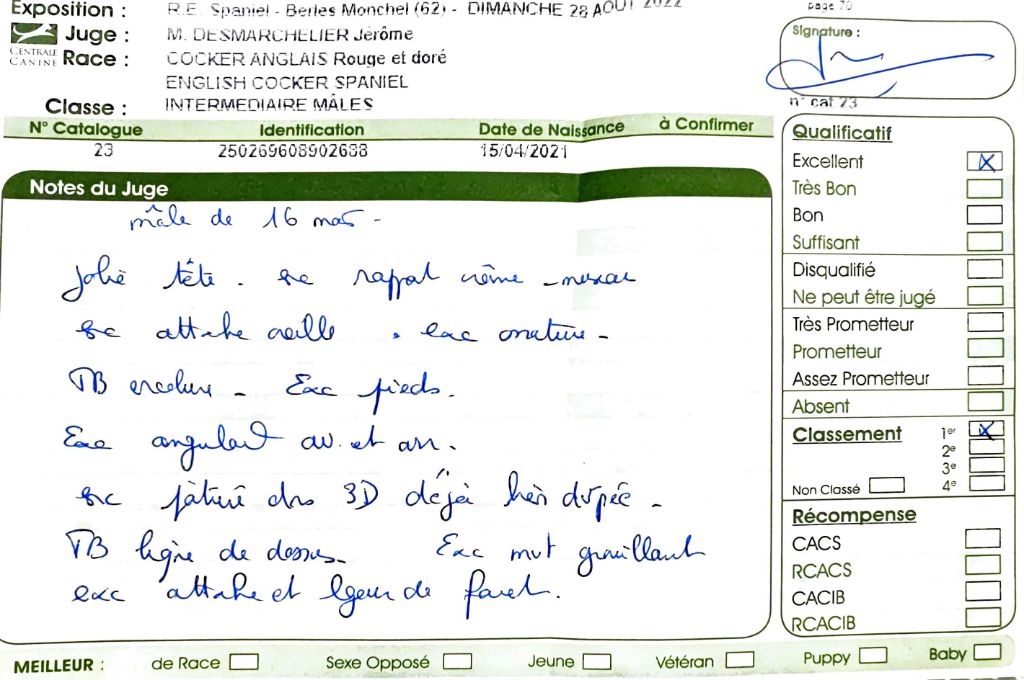 Exposition : R.E. Spaniel - Berles Monchel (62) - DIMANCHE 28 AOUT 2022
page 70
CENTRALE CANINE
Juge : M. DESMARCHELIER Jérôme
Race : COCKER ANGLAIS Rouge et doré
ENGLISH COCKER SPANIEL
Classe : INTERMEDIAIRE MÂLES
Signature :
n° cat 23
N° Catalogue Identification Date de Naissance à Confirmer
23 250269608902688 15/04/2021
Notes du Juge
mâle de 16 mois -
Jolie tête. exc rapport crâne - museau
exc attache oreille . exc ossature -
TB encolure - Exc pieds.
Exc angulat av. et arr.
exc poitrine dans 3D déjà bien dvpée -
TB ligne de dessus - Exc mvt grouillant
exc attache et lgueur de fouet.
Qualificatif
Excellent X
Très Bon
Bon
Suffisant
Disqualifié
Ne peut être jugé
Très Prometteur
Prometteur
Assez Prometteur
Absent
Classement 1er X
2e
3e
Non Classé 4e
Récompense
CACS
RCACS
CACIB
RCACIB
MEILLEUR : de Race Sexe Opposé Jeune Vétéran Puppy Baby